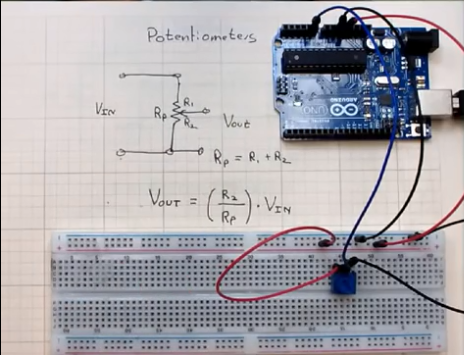 Potentiometers
VIN
R1
RP
R2
VOUT
RP = R1 + R2
VOUT = (R2/RP) · VIN
ARDUINO